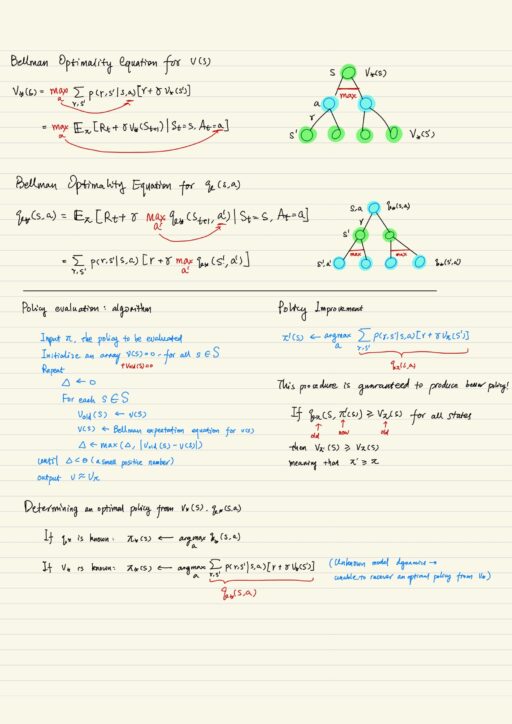 Bellman Optimality Equation for V(s)
V*(s) = max_a Σ_{r,s'} p(r,s'|s,a)[r+γ V*(s')]
= max_a E_π[R_t + γ V*(S_{t+1}) | S_t=s, A_t=a]
s V*(s)
max
a
r
s' V*(s')
Bellman Optimality Equation for q*(s,a)
q*(s,a) = E_π[R_t + γ max_{a'} q*(S_{t+1}, a') | S_t=s, A_t=a]
= Σ_{r,s'} p(r,s'|s,a) [r+γ max_{a'} q*(s',a')]
s,a q*(s,a)
r
s'
max max
s',a' q*(s',a')
Policy evaluation: algorithm
Input π, the policy to be evaluated
Initialize an array v(s)=0 for all s∈S
Repeat
Δ ← 0
For each s∈S
V_old(s) ← v(s)
v(s) ← Bellman expectation equation for v(s)
Δ ← max(Δ, |V_old(s) - v(s)|)
until Δ<θ (a small positive number)
output v ≈ v_π
Policy Improvement
π'(s) ← argmax_a Σ_{r,s'} p(r,s'|s,a)[r+γ V_π(s')]
q_π(s,a)
This procedure is guaranteed to produce better policy!
If q_π(s, π'(s)) ≥ V_π(s) for all states
old new old
then V_π'(s) ≥ V_π(s)
meaning that π' ≥ π
Determining an optimal policy from V*(s), q*(s,a)
If q* is known: π*(s) ← argmax_a q*(s,a)
If V* is known: π*(s) ← argmax_a Σ_{r,s'} p(r,s'|s,a)[r+γ V*(s')]
q*(s,a)
(Unknown model dynamics →
unable to recover an optimal policy from V*)